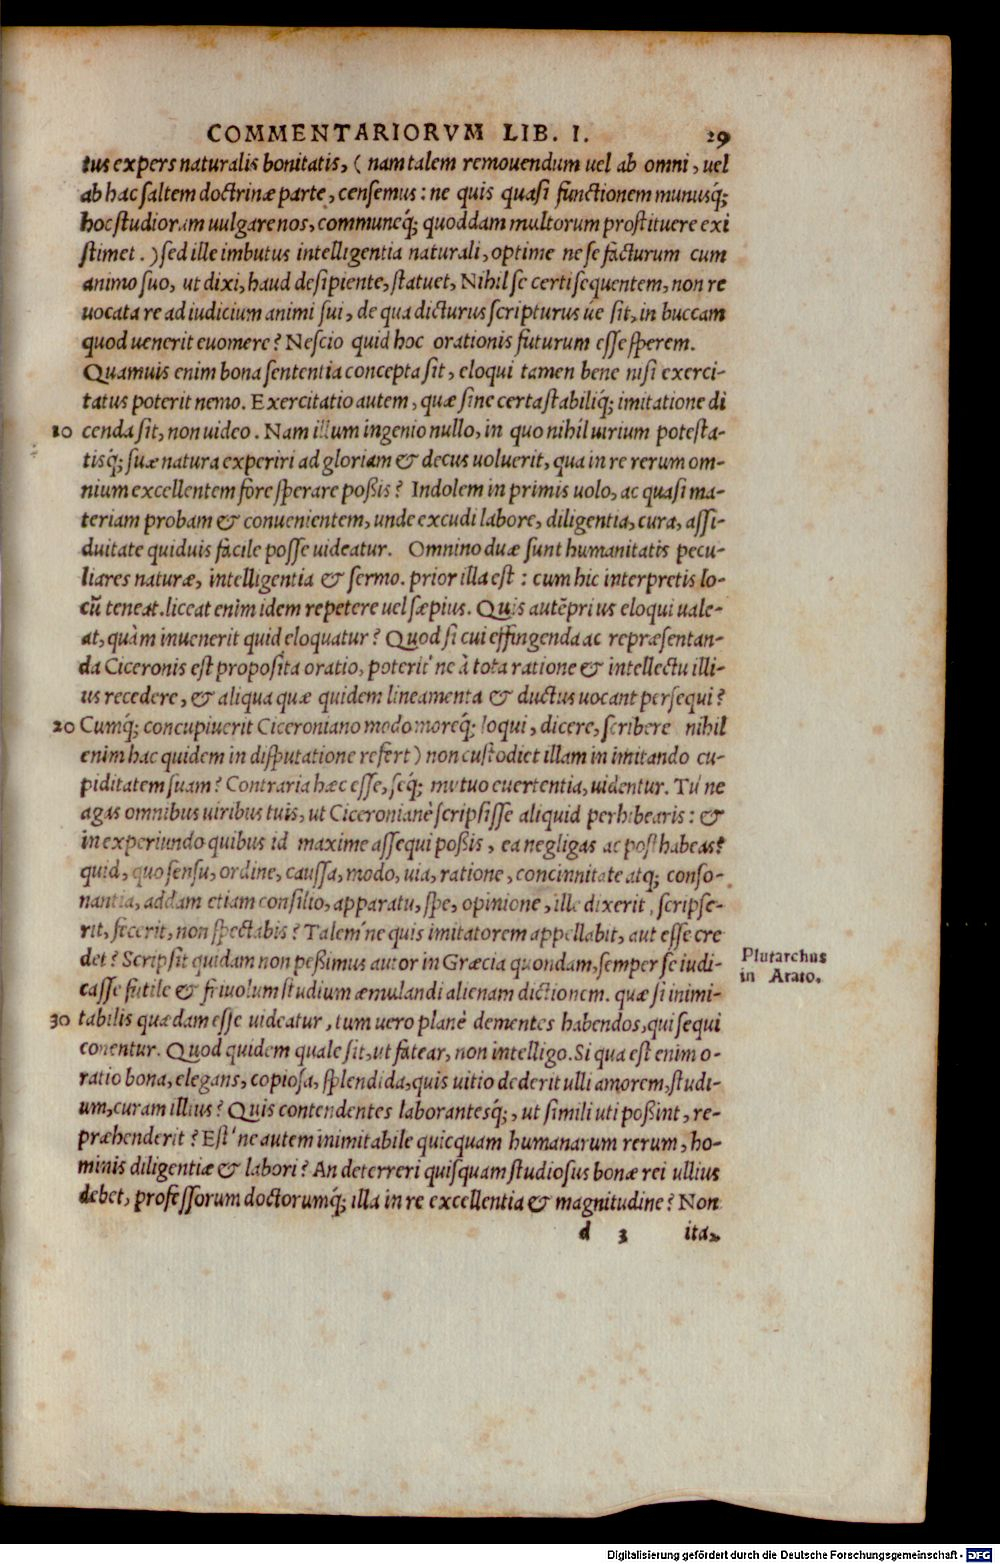 COMMENTARIORVM LIB. I. 29
tus expers naturalis bonitatis, ( nam talem remouendum uel ab omni, uel
ab hac saltem doctrinæ parte, censemus: ne quis quasi functionem munusq́;
hoc studiorum uulgare nos, communeq́; quoddam multorum prostituere exi
stimet. ) sed ille imbutus intelligentia naturali, optime ne se facturum cum
animo suo, ut dixi, haud desipiente, statuet, Nihil se certi sequentem, non re
uocata re ad iudicium animi sui, de qua dicturus scripturus ue sit, in buccam
quod uenerit euomere? Nescio quid hoc orationis futurum esse sperem.
Quamuis enim bona sententia concepta sit, eloqui tamen bene nisi exerci-
tatus poterit nemo. Exercitatio autem, quæ sine certa stabiliq́; imitatione di
10 cenda sit, non uideo. Nam illum ingenio nullo, in quo nihil uirium potesta-
tisq́; suæ natura experiri ad gloriam & decus uoluerit, qua in re rerum om-
nium excellentem fore sperare poßis? Indolem in primis uolo, ac quasi ma-
teriam probam & conuenientem, unde excudi labore, diligentia, cura, assi-
duitate quiduis facile posse uideatur. Omnino duæ sunt humanitatis pecu-
liares naturæ, intelligentia & sermo. prior illa est: cum hic interpretis lo-
cũ teneat. liceat enim idem repetere uel sæpius. Quis autẽ prius eloqui uale-
at, quàm inuenerit quid eloquatur? Quod si cui effingenda ac repræsentan-
da Ciceronis est proposita oratio, poterit'ne à tota ratione & intellectu illi-
us recedere, & aliqua quæ quidem lineamenta & ductus uocant persequi?
20 Cumq́; concupiuerit Ciceroniano modo moreq́; loqui, dicere, scribere nihil
enim hac quidem in disputatione refert) non custodiet illam in imitando cu-
piditatem suam? Contraria hæc esse, seq́; mutuo euertentia, uidentur. Tu ne
agas omnibus uiribus tuis, ut Ciceronianè scripsisse aliquid perhibearis: &
in experiundo quibus id maxime assequi poßis, ea negligas ac posthabeas?
quid, quo sensu, ordine, caussa, modo, uia, ratione, concinnitate atq; conso-
nantia, addam etiam consilio, apparatu, spe, opinione, ille dixerit, scripse-
rit, fecerit, non spectabis? Talem'ne quis imitatorem appellabit, aut esse cre
det? Scripsit quidam non peßimus autor in Græcia quondam, semper se iudi-
Plutarchus
in Arato.
casse futile & friuolum studium æmulandi alienam dictionem. quæ si inimi-
30 tabilis quædam esse uideatur, tum uero planè dementes habendos, qui sequi
conentur. Quod quidem quale sit, ut fatear, non intelligo. Si qua est enim o-
ratio bona, elegans, copiosa, splendida, quis uitio dederit ulli amorem, studi-
um, curam illius? Quis contendentes laborantesq́;, ut simili uti poßint, re-
præhenderit? Est'ne autem inimitabile quicquam humanarum rerum, ho-
minis diligentiæ & labori? An deterreri quisquam studiosus bonæ rei ullius
debet, professorum doctorumq́; illa in re excellentia & magnitudine? Non
d 3 ita,
Digitalisierung gefördert durch die Deutsche Forschungsgemeinschaft - DFG